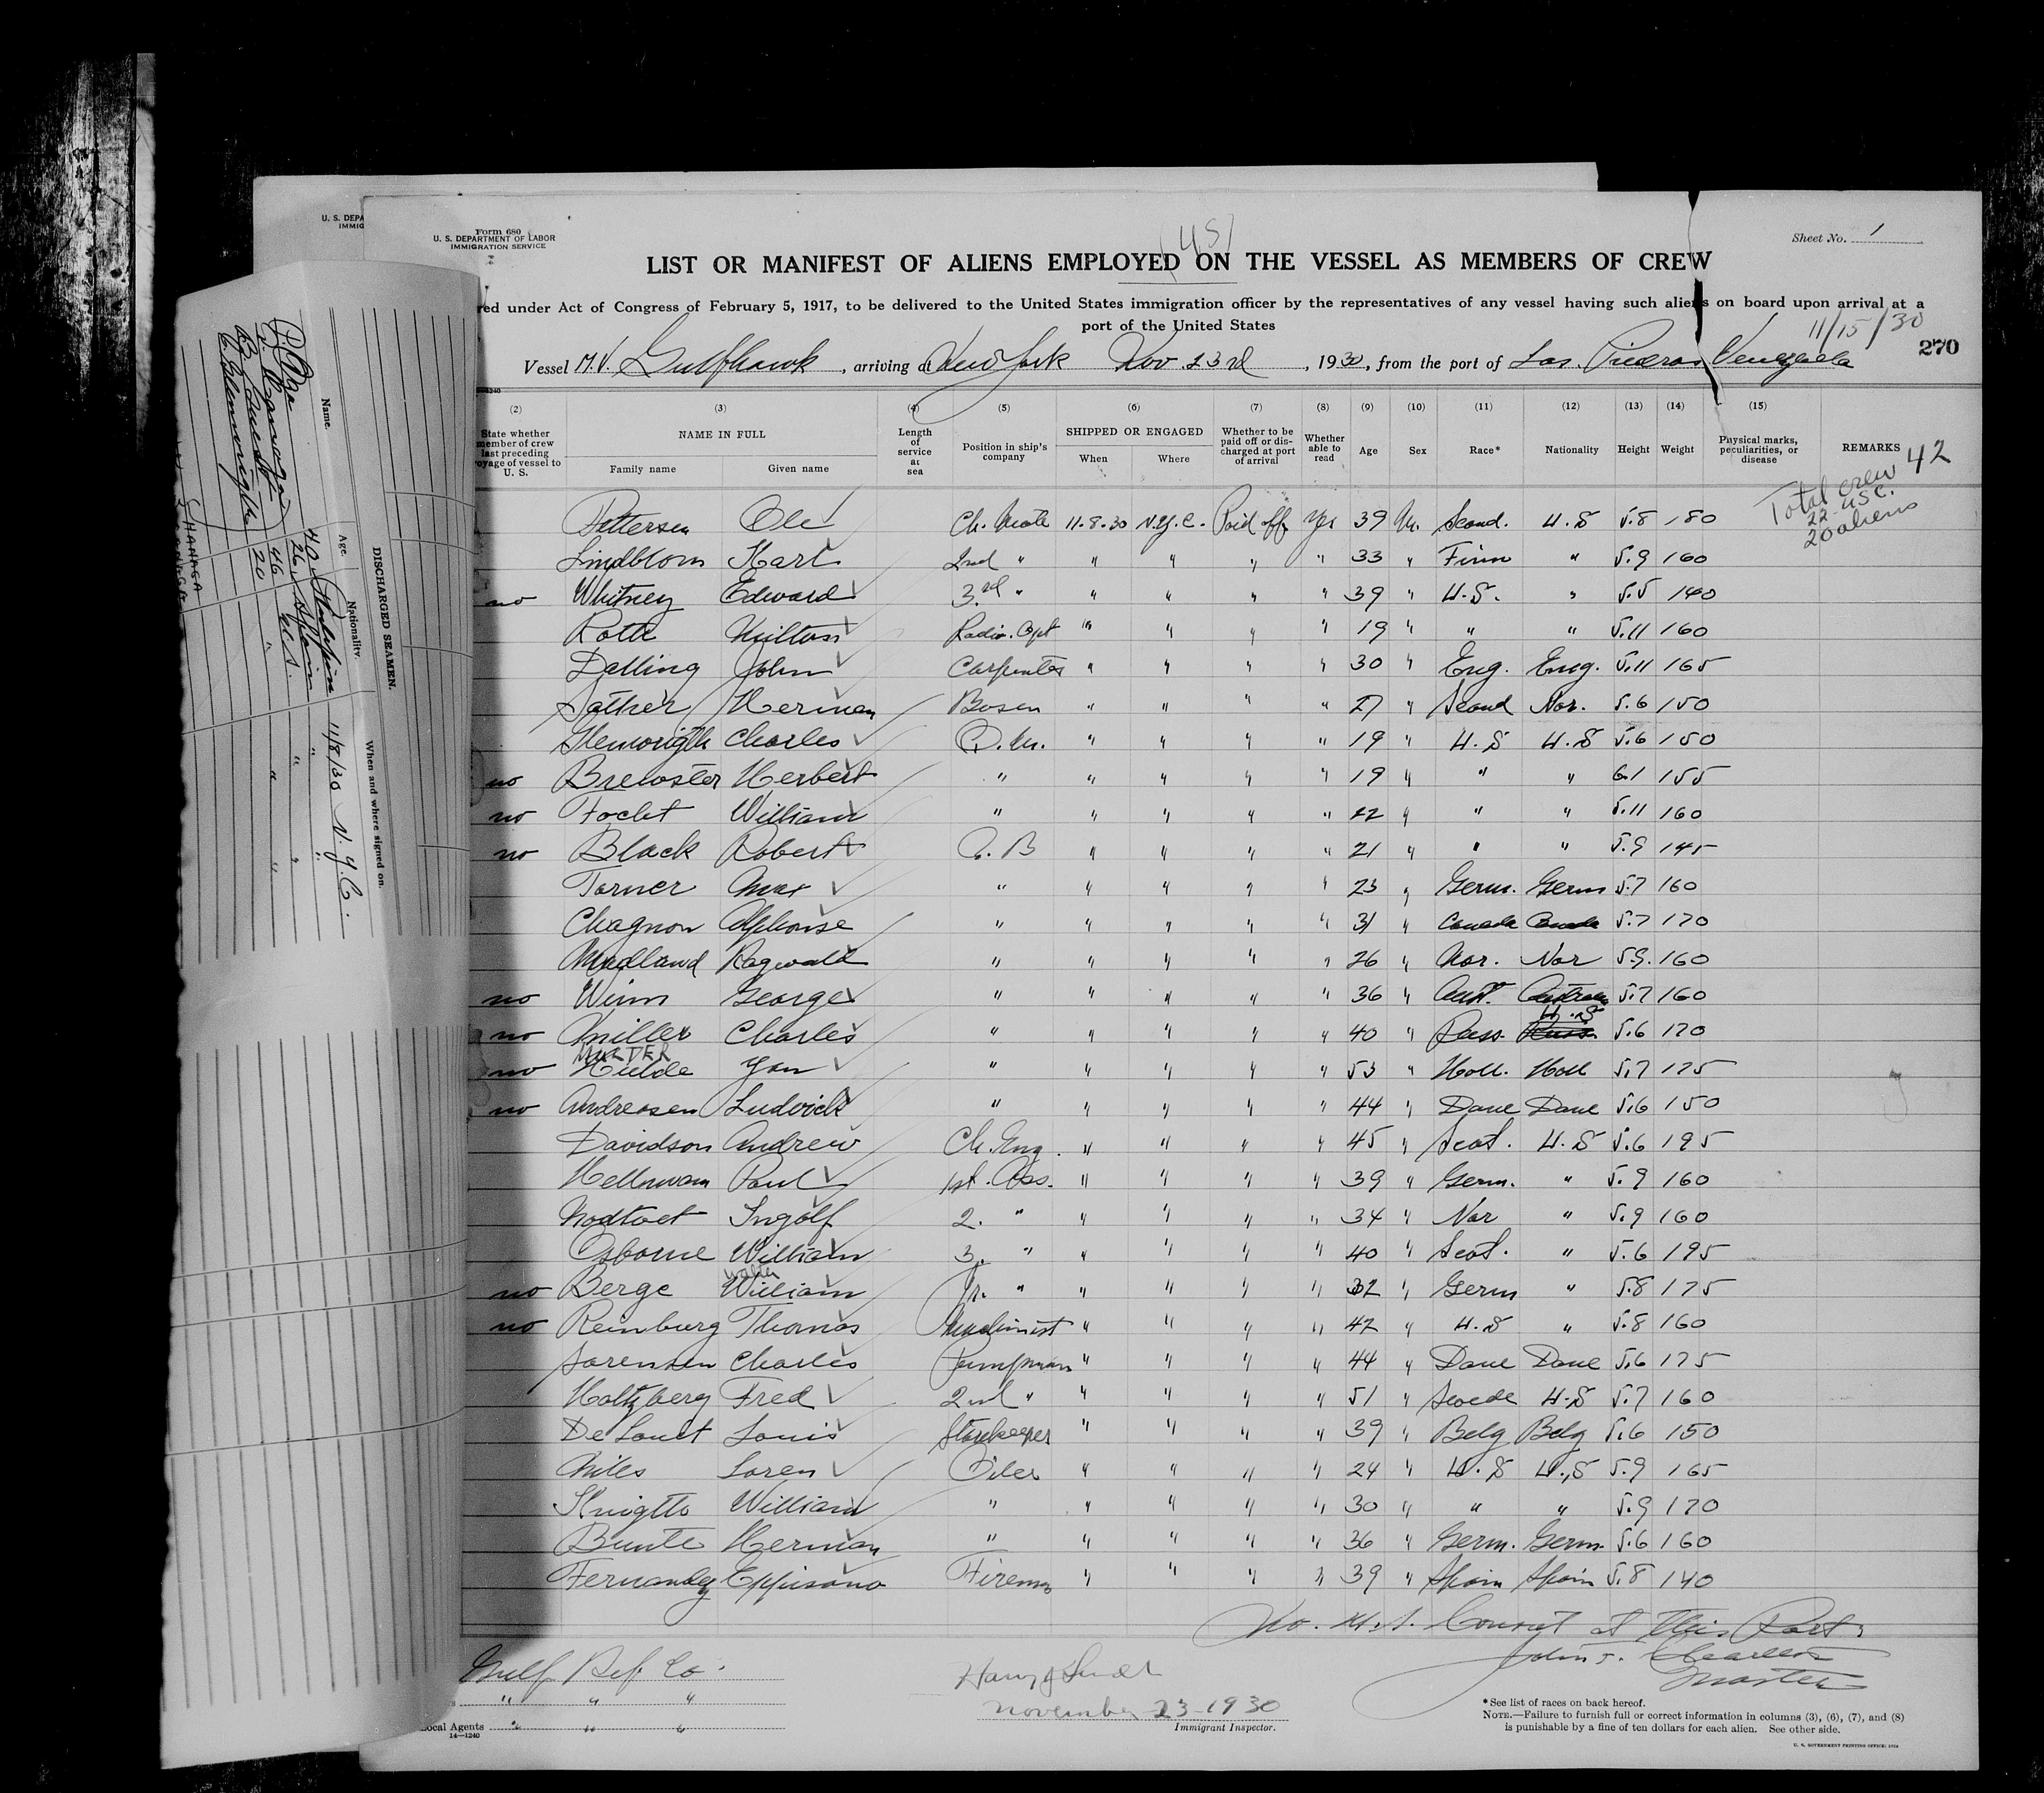 U. S. DEPA
IMMIG
Form 680
U. S. DEPARTMENT OF LABOR
IMMIGRATION SERVICE
U S
Sheet No. 1
LIST OR MANIFEST OF ALIENS EMPLOYED ON THE VESSEL AS MEMBERS OF CREW
red under Act of Congress of February 5, 1917, to be delivered to the United States immigration officer by the representatives of any vessel having such aliens on board upon arrival at a
port of the United States
11/15/30
270
Vessel M.V. Gulfhawk, arriving at New York Nov 23rd, 1930, from the port of Las Piedras Venezuela
(2) (3) (4) (5) (6) (7) (8) (9) (10) (11) (12) (13) (14) (15)
State whether member of crew last preceding oyage of vessel to U. S.
NAME IN FULL
Family name Given name
Length of service at sea
Position in ship's company
SHIPPED OR ENGAGED
When Where
Whether to be paid off or discharged at port of arrival
Whether able to read
Age Sex Race* Nationality Height Weight
Physical marks, peculiarities, or disease
REMARKS
Total crew 42
22 USC.
20 aliens
Pettersen Ole Ch. Mate 11-8-30 N.Y.C. Paid off Yes 39 M. Scand. U.S 5.8 180
Lindblom Karl 2nd " " " " " 33 " Finn " 5.9 160
no Whitney Edward 3rd " " " " " 39 " U.S. " 5.5 140
Roth Milton Radio. Opt " " " " 19 " " " 5.11 160
Delling John Carpenter " " " " 30 " Eng. Eng. 5.11 165
Sather Herman Bosen " " " " 27 " Scand Nor. 5.6 150
Glenwrigth Charles Q.M. " " " " 19 " U.S U.S 5.6 150
no Brewster Herbert " " " " " 19 " " " 6.1 155
no Focht William " " " " " 22 " " " 5.11 160
no Black Robert A.B " " " " 21 " " " 5.9 145
Torner Max " " " " " 23 " Germ. Germ 5.7 160
Chagnon Alphonse " " " " " 31 " Canada Canada 5.7 170
Madland Ragwald " " " " " 26 " Nor. Nor 5.9. 160
no Winn George " " " " " 36 " Aust. 5.7 160
no Miller Charles " " " " " 40 " Russ. Russ. U.S 5.6 170
MULDER
no Hulde Jan " " " " " 53 " Holl. Holl 5.7 175
no Andreasen Ludvick " " " " " 44 " Dane Dane 5.6 150
Davidson Andrew Ch. Eng. " " " " 45 " Scot. U.S 5.6 195
Hellmann Paul 1st. Ass. " " " " 39 " Germ. " 5.9 160
Nodtvet Ingolf 2. " " " " " 34 " Nor " 5.9 160
Osborne William 3. " " " " " 40 " Scot. " 5.6 195
Walter
no Berge William Jr. " " " " " 32 " Germ " 5.8 175
no Reinburg Thomas Machinist " " " " 42 " U.S " 5.8 160
Sorensen Charles Pumpman " " " " 44 " Dane Dane 5.6 175
Holtzberg Fred 2nd " " " " " 51 " Swede U.S 5.7 160
De Louct Louis Storekeeper " " " " 39 " Belg Belg 5.6 150
Miles Loren Oiler " " " " 24 " U.S U.S 5.9 165
Knigtto William " " " " " 30 " " " 5.9 170
Bunte Herman " " " " " 36 " Germ. Germ. 5.6 160
Fernandez Fireman " " " " 39 " Spain Spain 5.8 140
No. U.S. Consul at this Port,
John F.
Master
Gulf Ref. Co.
" " "
Local Agents " " "
14—1240
Harry J Lindt
November 23-1930
Immigrant Inspector.
*See list of races on back hereof.
NOTE.—Failure to furnish full or correct information in columns (3), (6), (7), and (8)
is punishable by a fine of ten dollars for each alien. See other side.
DISCHARGED SEAMEN.
Name. Age. Nationality. When and where signed on.
40 Philippin 11/8/30 N.Y.C.
26 Spain " "
46 U.S. " "
C. Glenwrigth 20 " " "